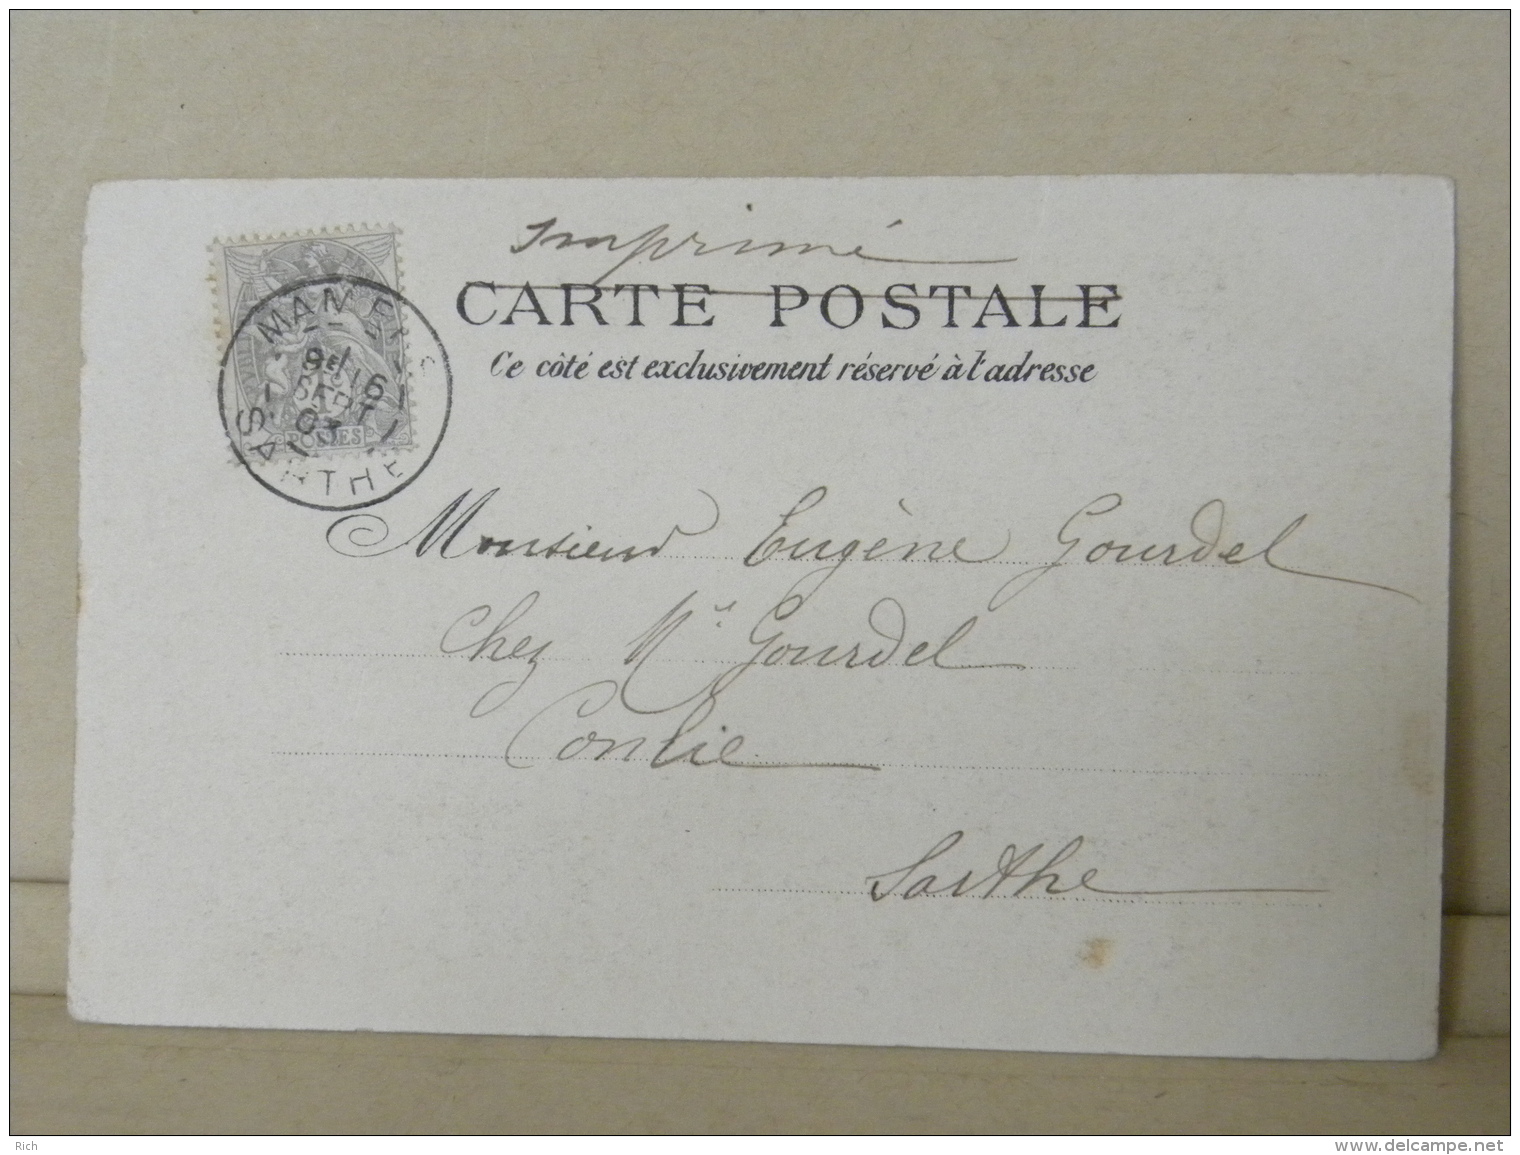 Imprimé
CARTE POSTALE
Ce côté est exclusivement réservé à l'adresse
MAMERS
SARTHE
SEPT
03
POSTES
Monsieur Eugène Gourdel
Chez Mr Gourdel
Conlie
Sarthe
Rich
www.delcampe.net